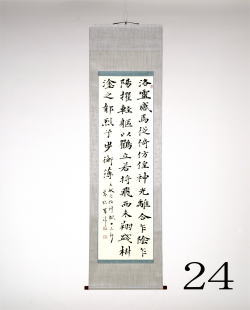 洛靈感焉徙倚彷徨神光離合乍陰乍
陽擢輕軀以鶴立若將飛而未翔踐椒
塗之郁烈步蘅薄
24